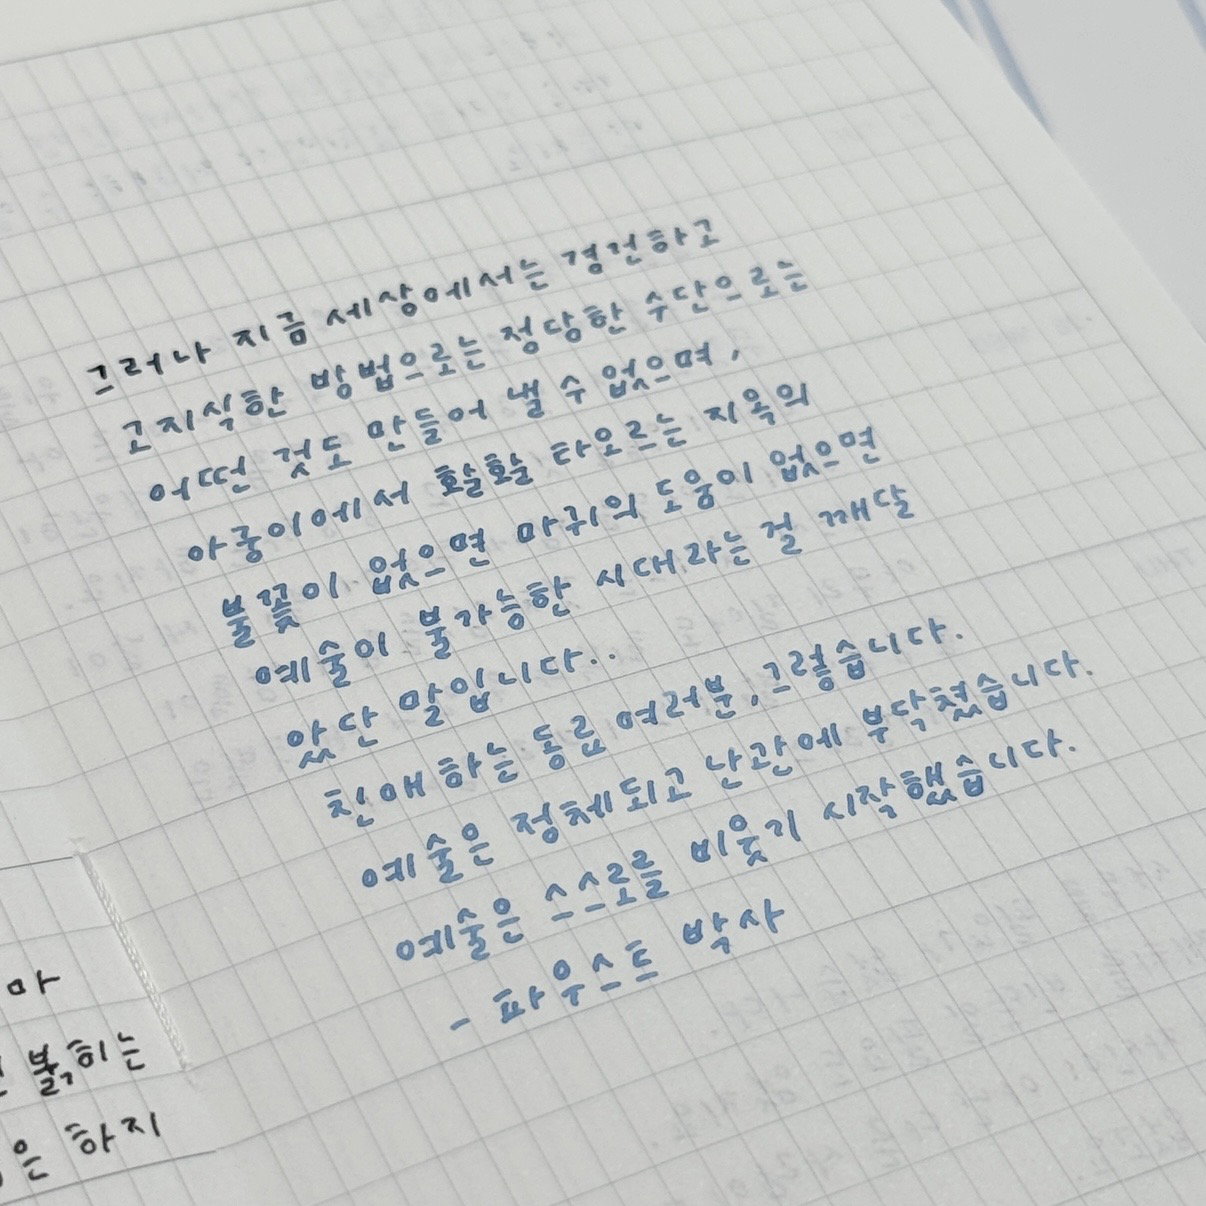 그러나 지금 세상에서는 경건하고
고지식한 방법으로는 정당한 수단으로는
어떤 것도 만들어 낼 수 없으며,
아궁이에서 활활 타오르는 지옥의
불꽃이 없으면 마귀의 도움이 없으면
예술이 불가능한 시대라는 걸 깨달
았단 말입니다..
친애하는 동료 여러분, 그렇습니다.
예술은 정체되고 난관에 부닥쳤습니다.
예술은 스스로를 비웃기 시작했습니다.
- 파우스트 박사
마
붉히는
은 하지